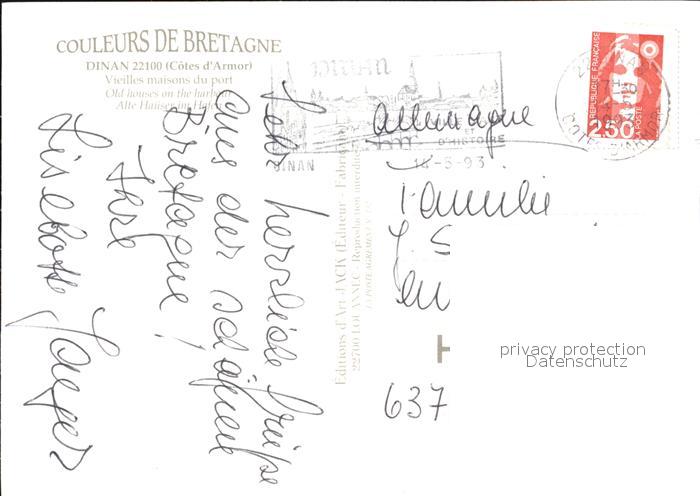 COULEURS DE BRETAGNE
DINAN 22100 (Côtes d'Armor)
Vieilles maisons du port
Old houses on the harbour
Alte Haüser im Hafen
Sehr herzliche Grüße
aus der schönen
Bretagne!
Ihre
Liselotte
Editions d'Art JACK (Éditeur - Fabricant)
22700 LOUANNEC - Reproduction interdite
DINAN
ET
D'HISTOIRE
DINAN
14-5-93
REPUBLIQUE FRANÇAISE
2,50
LA POSTE
Allemagne
Familie
637
privacy protection
Datenschutz